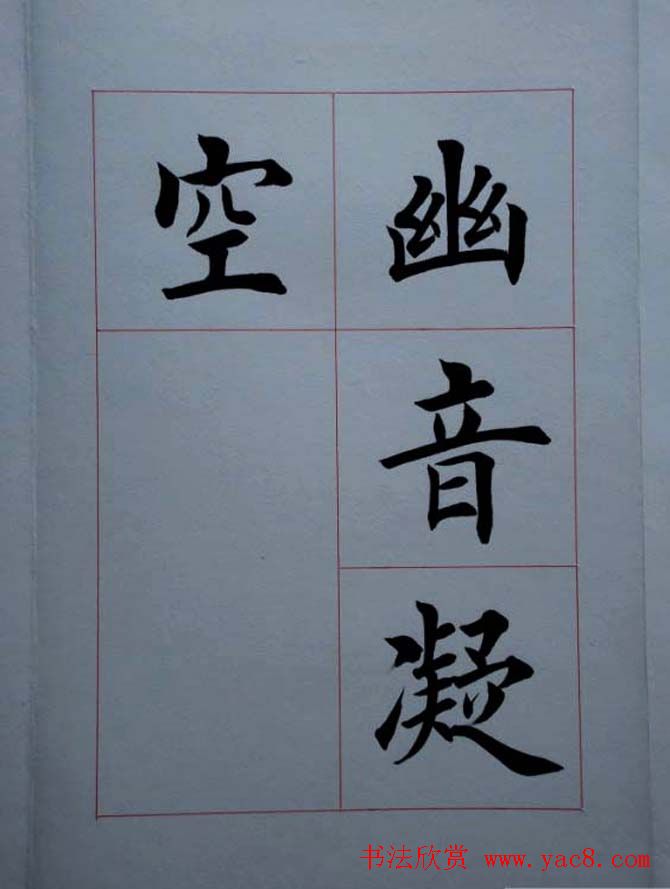 幽音凝
空
书法欣赏 www.yac8.com